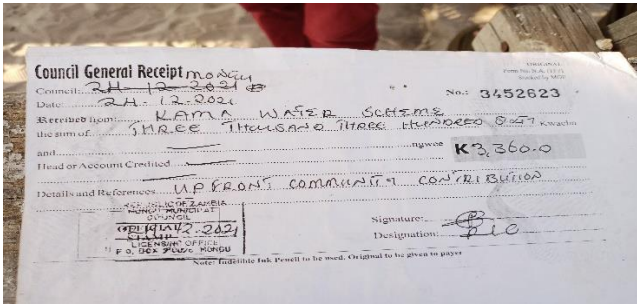 ORIGINAL
Council General Receipt MONGU
Council: 24-12-2021
Date: 24.12.2021
No.: 3452623
Received from: KAMA WATER SCHEME
the sum of THREE THOUSAND THREE HUNDRED ONLY Kwacha
and ngwee K3,360.0
Head or Account Credited
Details and References UPFRONT COMMUNITY CONTRIBUTION
REPUBLIC OF ZAMBIA
MONGU MUNICIPAL
COUNCIL
12-2021
LICENSING OFFICE
P.O. BOX MONGU
Signature:
Designation:
Note: Indelible Ink Pencil to be used. Original to be given to payer